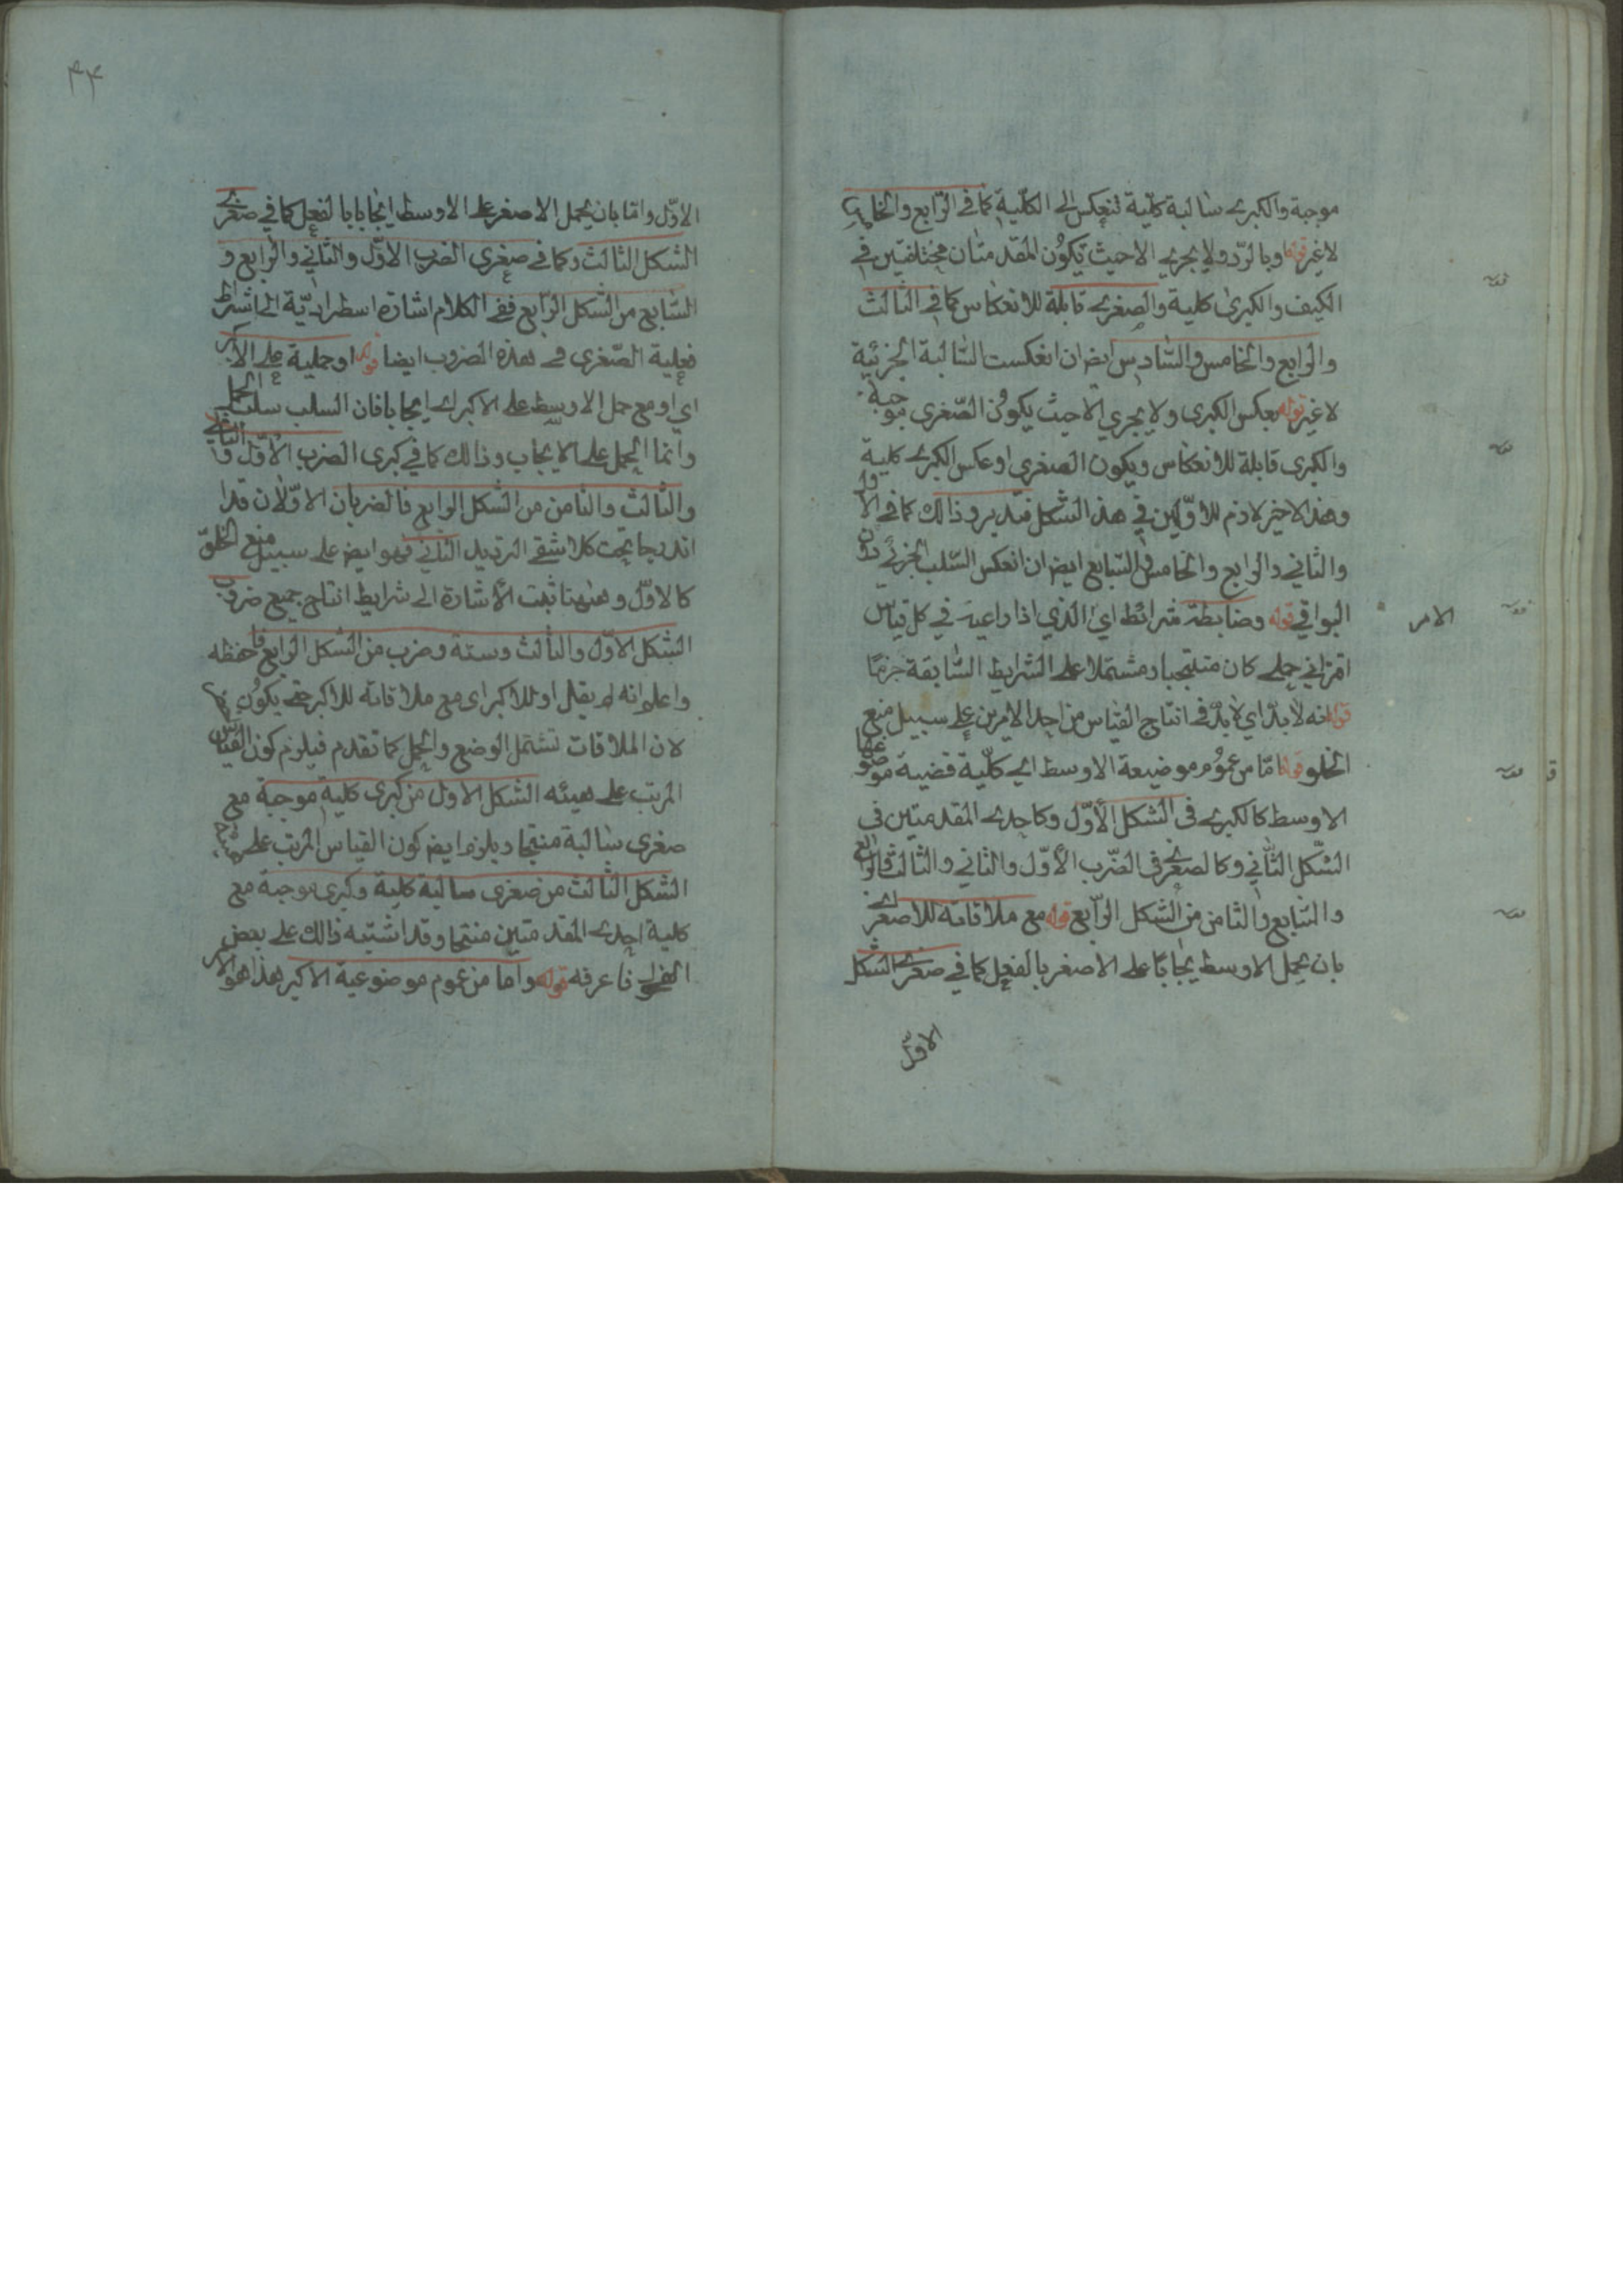 موجبة والكبرى سالبة كليّة تنعكس الى الكليّة كما في الرّابع والخامس
لا غير قوله وبالرّد ولا يجري الا حيث يكون المقدمتان مختلفتين في
الكيف والكبرى كلية والصغرى قابلة للانعكاس كما في الثالث
والرابع والخامس والسّادس ايض ان انعكست السّالبة الجزئية
لا غير قوله بعكس الكبرى ولا يجري الا حيث يكون الصّغرى موجبة
والكبرى قابلة للانعكاس ويكون الصغرى او عكس الكبرى كلية
وهذ الاخير لازم للاوّلين في هذ الشكل فتدبر وذالك كما في الاول
والثاني والرابع والخامس والسّابع ايض ان انعكس السّلب الجزئي دون
البواقي قوله وضابطة شرائط اي الذي اذا راعيته في كل قياس
الامر
اقتراني حملي كان منتجا ومشتملا على الشرايط السّابقة جزمًا
قوله انه لا بدّ اي لا بدّ في انتاج القياس من احد الامرين على سبيل منع
الخلو قوله امّا من عموم موضيعة الاوسط اي كلّية قضية موضوعها
الاوسط كالكبرى في الشكل الاوّل وكاحدى المقدمتين في
الشكل الثّاني وكالصغرى في الضّرب الاوّل والثاني والثالث والرابع
والسّابع والثامن من الشكل الرّابع قوله مع ملاقاته للاصغر اي
بان يحمل الاوسط يجابًا على الاصغر بالفعل كما في صغرى الشكل
الاوّل
۴۴
الاوّل وامّا بان يحمل الاصغر على الاوسط ايجابا بالفعل كما في صغرى
الشكل الثالث وكما في صغرى الضرب الاوّل والثاني والرابع و
السّابع من الشكل الرّابع ففي الكلام اشارة اسطراديّة الى اشتراط
فعلية الصّغرى في هذه الضروب ايضا قوله او حملية على الاكبر
اي او مع حمل الاوسط على الاكبر اي ايجابا فان السلب سلب الحمل
وانما الحمل على الايجاب وذالك كما في كبرى الضرب الاوّل والثاني
والثالث والثامن من الشكل الرابع فالضربان الاوّلان قد ا
اندرجا تحت كلا شقي الترديد الثاني فهو ايض على سبيل منع الخلوّ
كالاوّل وههنا تمّت الاشارة الى شرايط انتاج جميع ضروب
الشكل الاوّل والثالث وستة وضرب من الشكل الرابع فاحفظه
واعلم انه لم يقل او للاكبر اى مع ملاقاته للاكبر حتى يكون
لان الملاقات تشتمل الوضع والحمل كما تقدم فيلزم كون القياس
المرتب على هيئه الشكل الاول من كبرى كلية موجبة مع
صغرى سالبة منتجا ويلزم ايض كون القياس المرتب على
الشكل الثالث من صغرى سالبة كلية وكبرى موجبة مع
كلية احدى المقدمتين منتجا وقد اشتبه ذالك على بعض
الفحول فاعرفه قوله واما من عموم موضوعية الاكبر هذا هو الامر